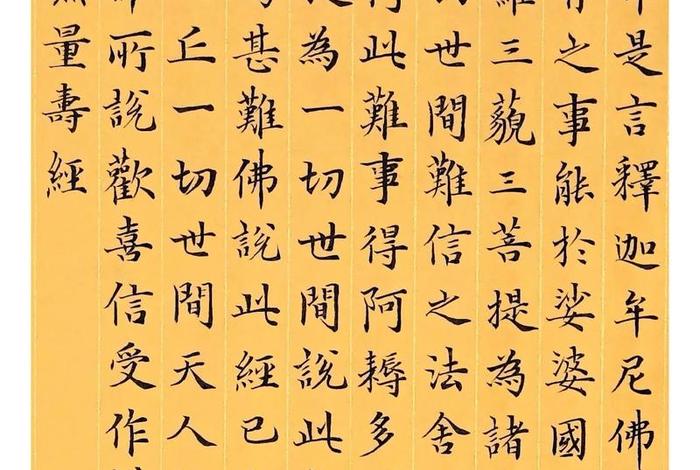 是言釋迦牟尼佛
之事能於娑婆國
三藐三菩提為諸
世間難信之法舍
此難事得阿耨多
為一切世間說此
甚難佛說此經已
丘一切世間天人
所說歡喜信受作
量壽經